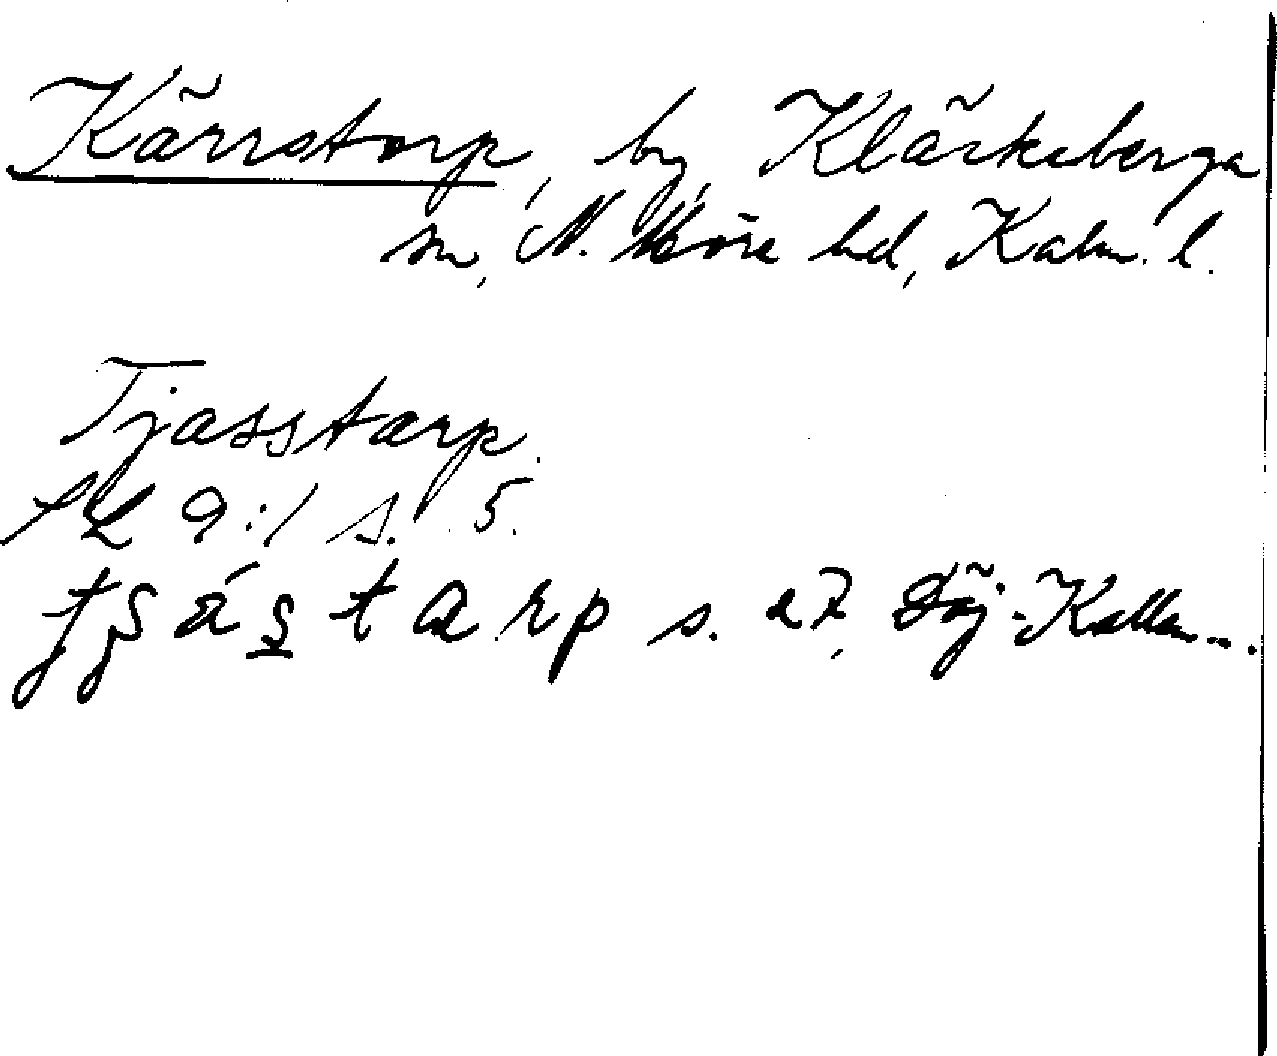 Kärrstorp, by, Kläckeberga
sn, N. Möre hd, Kalm. l.
Tjasstarp.
SL 9:1 s. 5.
s. 27, Döj-Kallen...